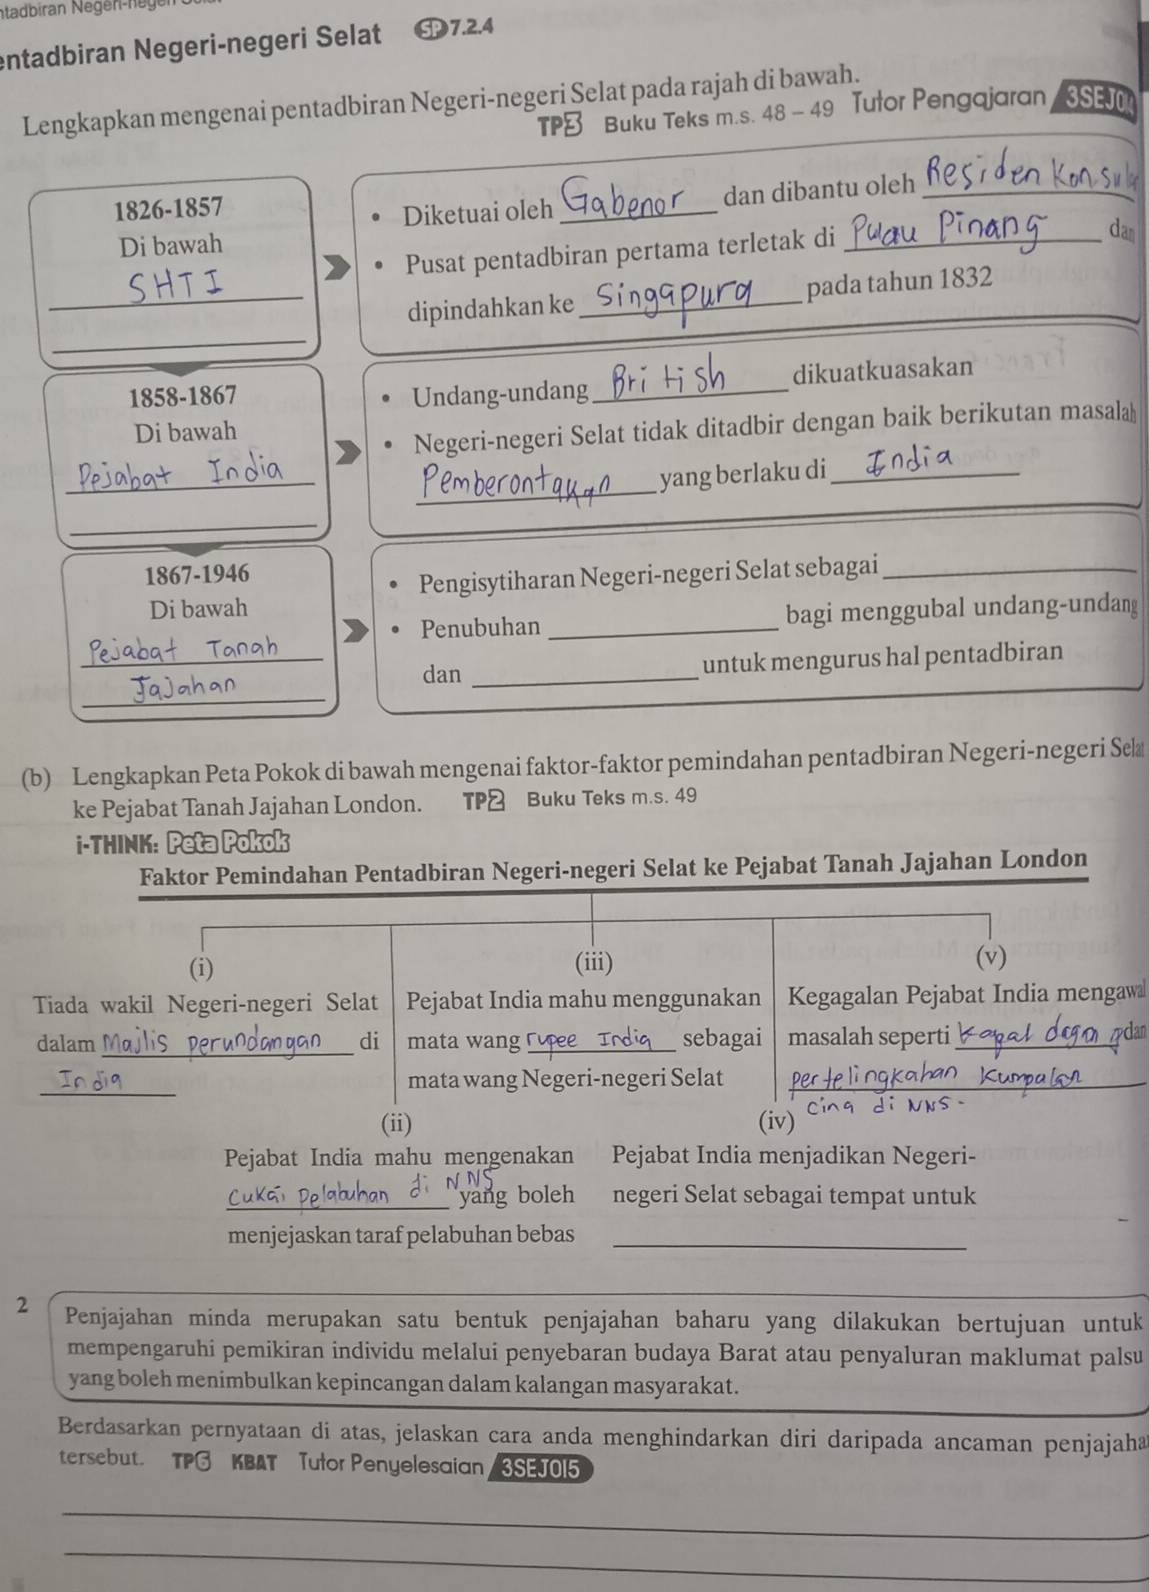 ntadbiran Negeri-neger
entadbiran Negeri-negeri Selat SP 7.2.4
Lengkapkan mengenai pentadbiran Negeri-negeri Selat pada rajah di bawah.
TP3 Buku Teks m.s. 48 – 49 Tutor Pengajaran 3SEJ0
1826-1857
Di bawah
SHTI
Diketuai oleh Gabenor dan dibantu oleh Residen Konsular
• Pusat pentadbiran pertama terletak di Pulau Pinang dan
dipindahkan ke Singapura pada tahun 1832
1858-1867
Di bawah
Pejabat India
• Undang-undang British dikuatkuasakan
• Negeri-negeri Selat tidak ditadbir dengan baik berikutan masalah
Pemberontakan yang berlaku di India
1867-1946
Di bawah
Pejabat Tanah
Jajahan
• Pengisytiharan Negeri-negeri Selat sebagai
• Penubuhan bagi menggubal undang-undang
dan untuk mengurus hal pentadbiran
(b) Lengkapkan Peta Pokok di bawah mengenai faktor-faktor pemindahan pentadbiran Negeri-negeri Selat
ke Pejabat Tanah Jajahan London. TP2 Buku Teks m.s. 49
i-THINK: Peta Pokok
Faktor Pemindahan Pentadbiran Negeri-negeri Selat ke Pejabat Tanah Jajahan London
(i)
Tiada wakil Negeri-negeri Selat
dalam Majlis perundangan di
India
(iii)
Pejabat India mahu menggunakan
mata wang rupee India sebagai
mata wang Negeri-negeri Selat
(v)
Kegagalan Pejabat India mengawal
masalah seperti kapal dagang dan
pertelingkahan Kumpulan
cina di NNS.
(ii)
Pejabat India mahu mengenakan
cukai pelabuhan di NNS yang boleh
menjejaskan taraf pelabuhan bebas
(iv)
Pejabat India menjadikan Negeri-
negeri Selat sebagai tempat untuk
2 Penjajahan minda merupakan satu bentuk penjajahan baharu yang dilakukan bertujuan untuk
mempengaruhi pemikiran individu melalui penyebaran budaya Barat atau penyaluran maklumat palsu
yang boleh menimbulkan kepincangan dalam kalangan masyarakat.
Berdasarkan pernyataan di atas, jelaskan cara anda menghindarkan diri daripada ancaman penjajaha
tersebut. TP6 KBAT Tutor Penyelesaian 3SEJ015